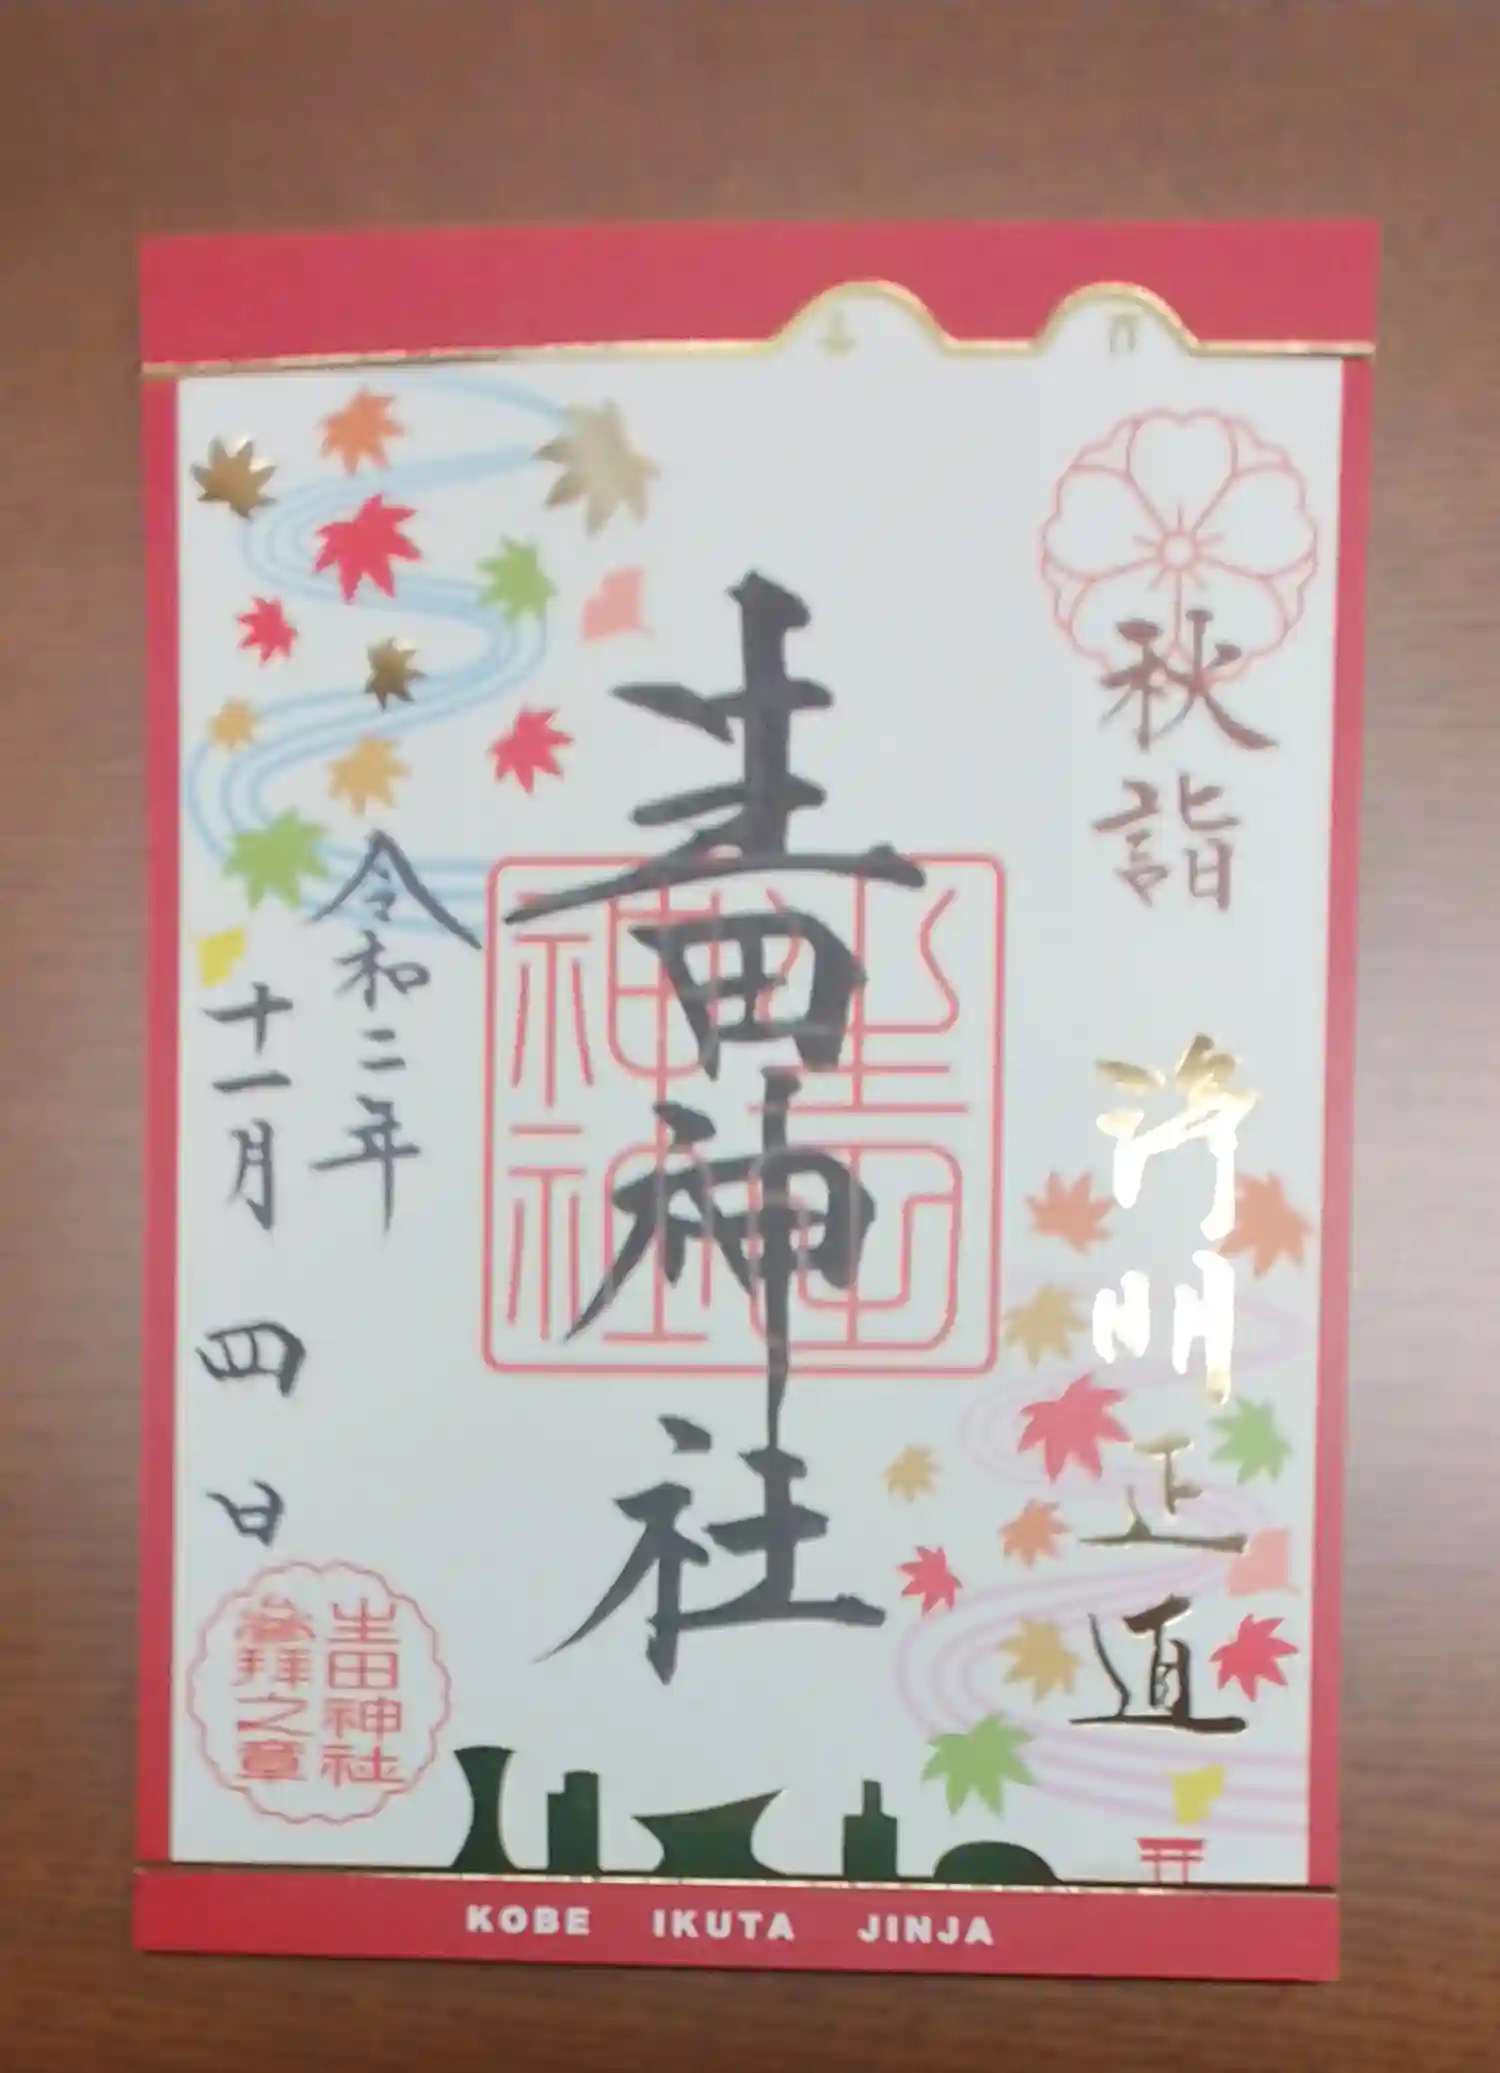 秋詣
浄明正直
生田神社
生田神社
令和二年
十一月四日
生田神社
参拜之章
KOBE IKUTA JINJA